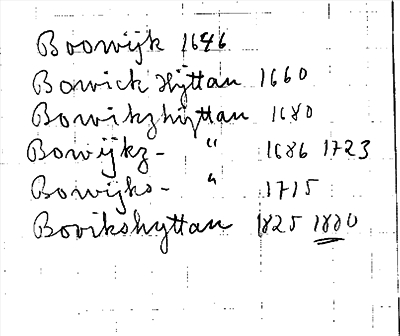 Boowijk 1646
Bowick Hyttan 1660
Bowikzhyttan 1680
Bowijkz- " 1686 1723
Bowijks- " 1715
Bovikshyttan 1825 1880